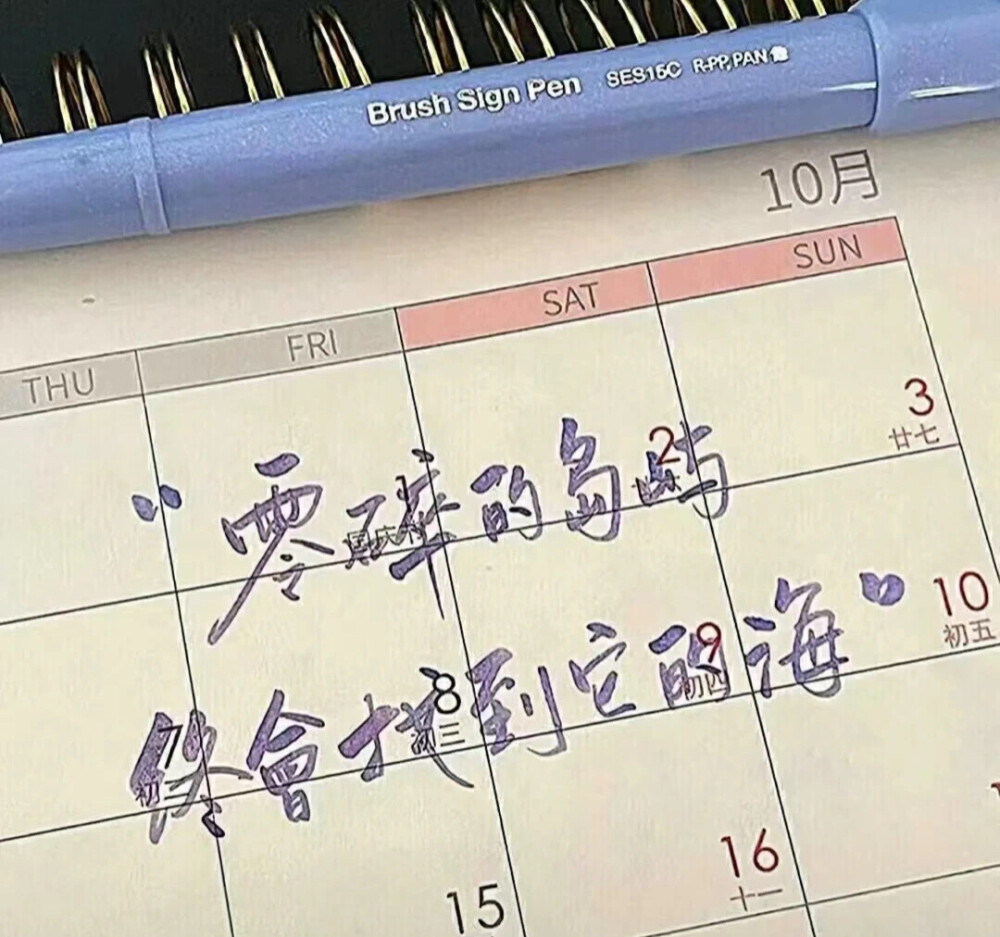 Brush Sign Pen SES15C R-PP,PAN
10月
THU FRI SAT SUN
2 3
国庆节 廿七
“零碎的島屿
7 8 9 10
初二 初三 初四 初五
終會找到它的海”
15 16
十一